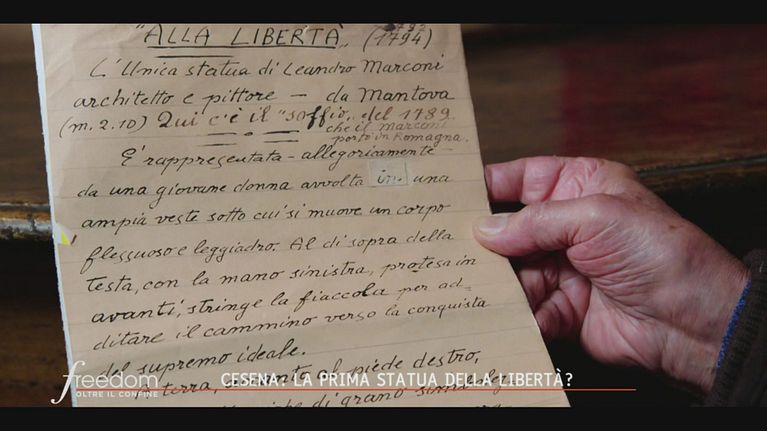 "ALLA LIBERTÀ" (1794)
L'Unica statua di Leandro Marconi
architetto e pittore - da Mantova
(m. 2.10) Qui c'è il "soffio" del 1789
che il Marconi
portò in Romagna.
E' rappresentata - allegoricamente -
da una giovane donna avvolta in una
ampia veste sotto cui si muove un corpo
flessuoso e leggiadro. Al di sopra della
testa, con la mano sinistra, protesa in
avanti, stringe la fiaccola per ad=
ditare il cammino verso la conquista
del supremo ideale.
terra, al piede destro,
di grano
freedom
OLTRE IL CONFINE
CESENA: LA PRIMA STATUA DELLA LIBERTÀ?